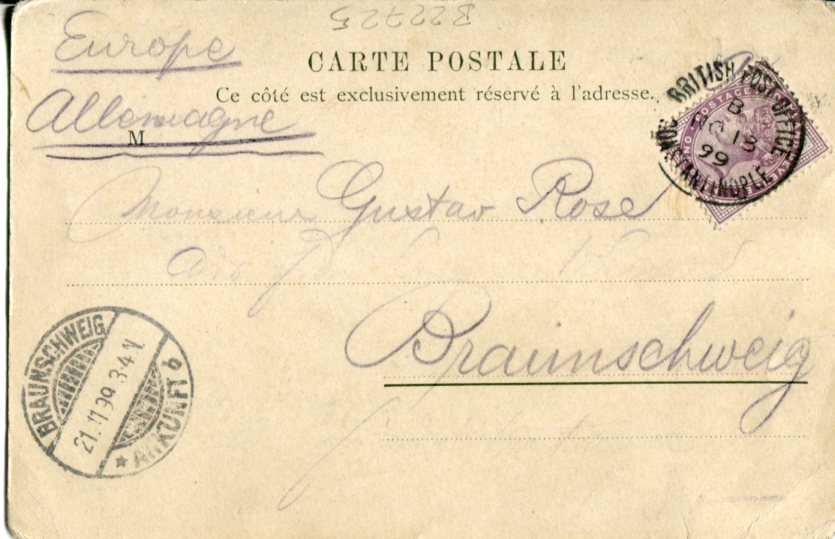 B22725
Europe
CARTE POSTALE
Ce côté est exclusivement réservé à l'adresse.
Allemagne
M
BRITISH POST OFFICE
B
NO 18
99
CONSTANTINOPLE
POSTAGE
Monsieur Gustav Rose
Braunschweig
BRAUNSCHWEIG
21.11.99.3-4V.
* ANKUNFT b